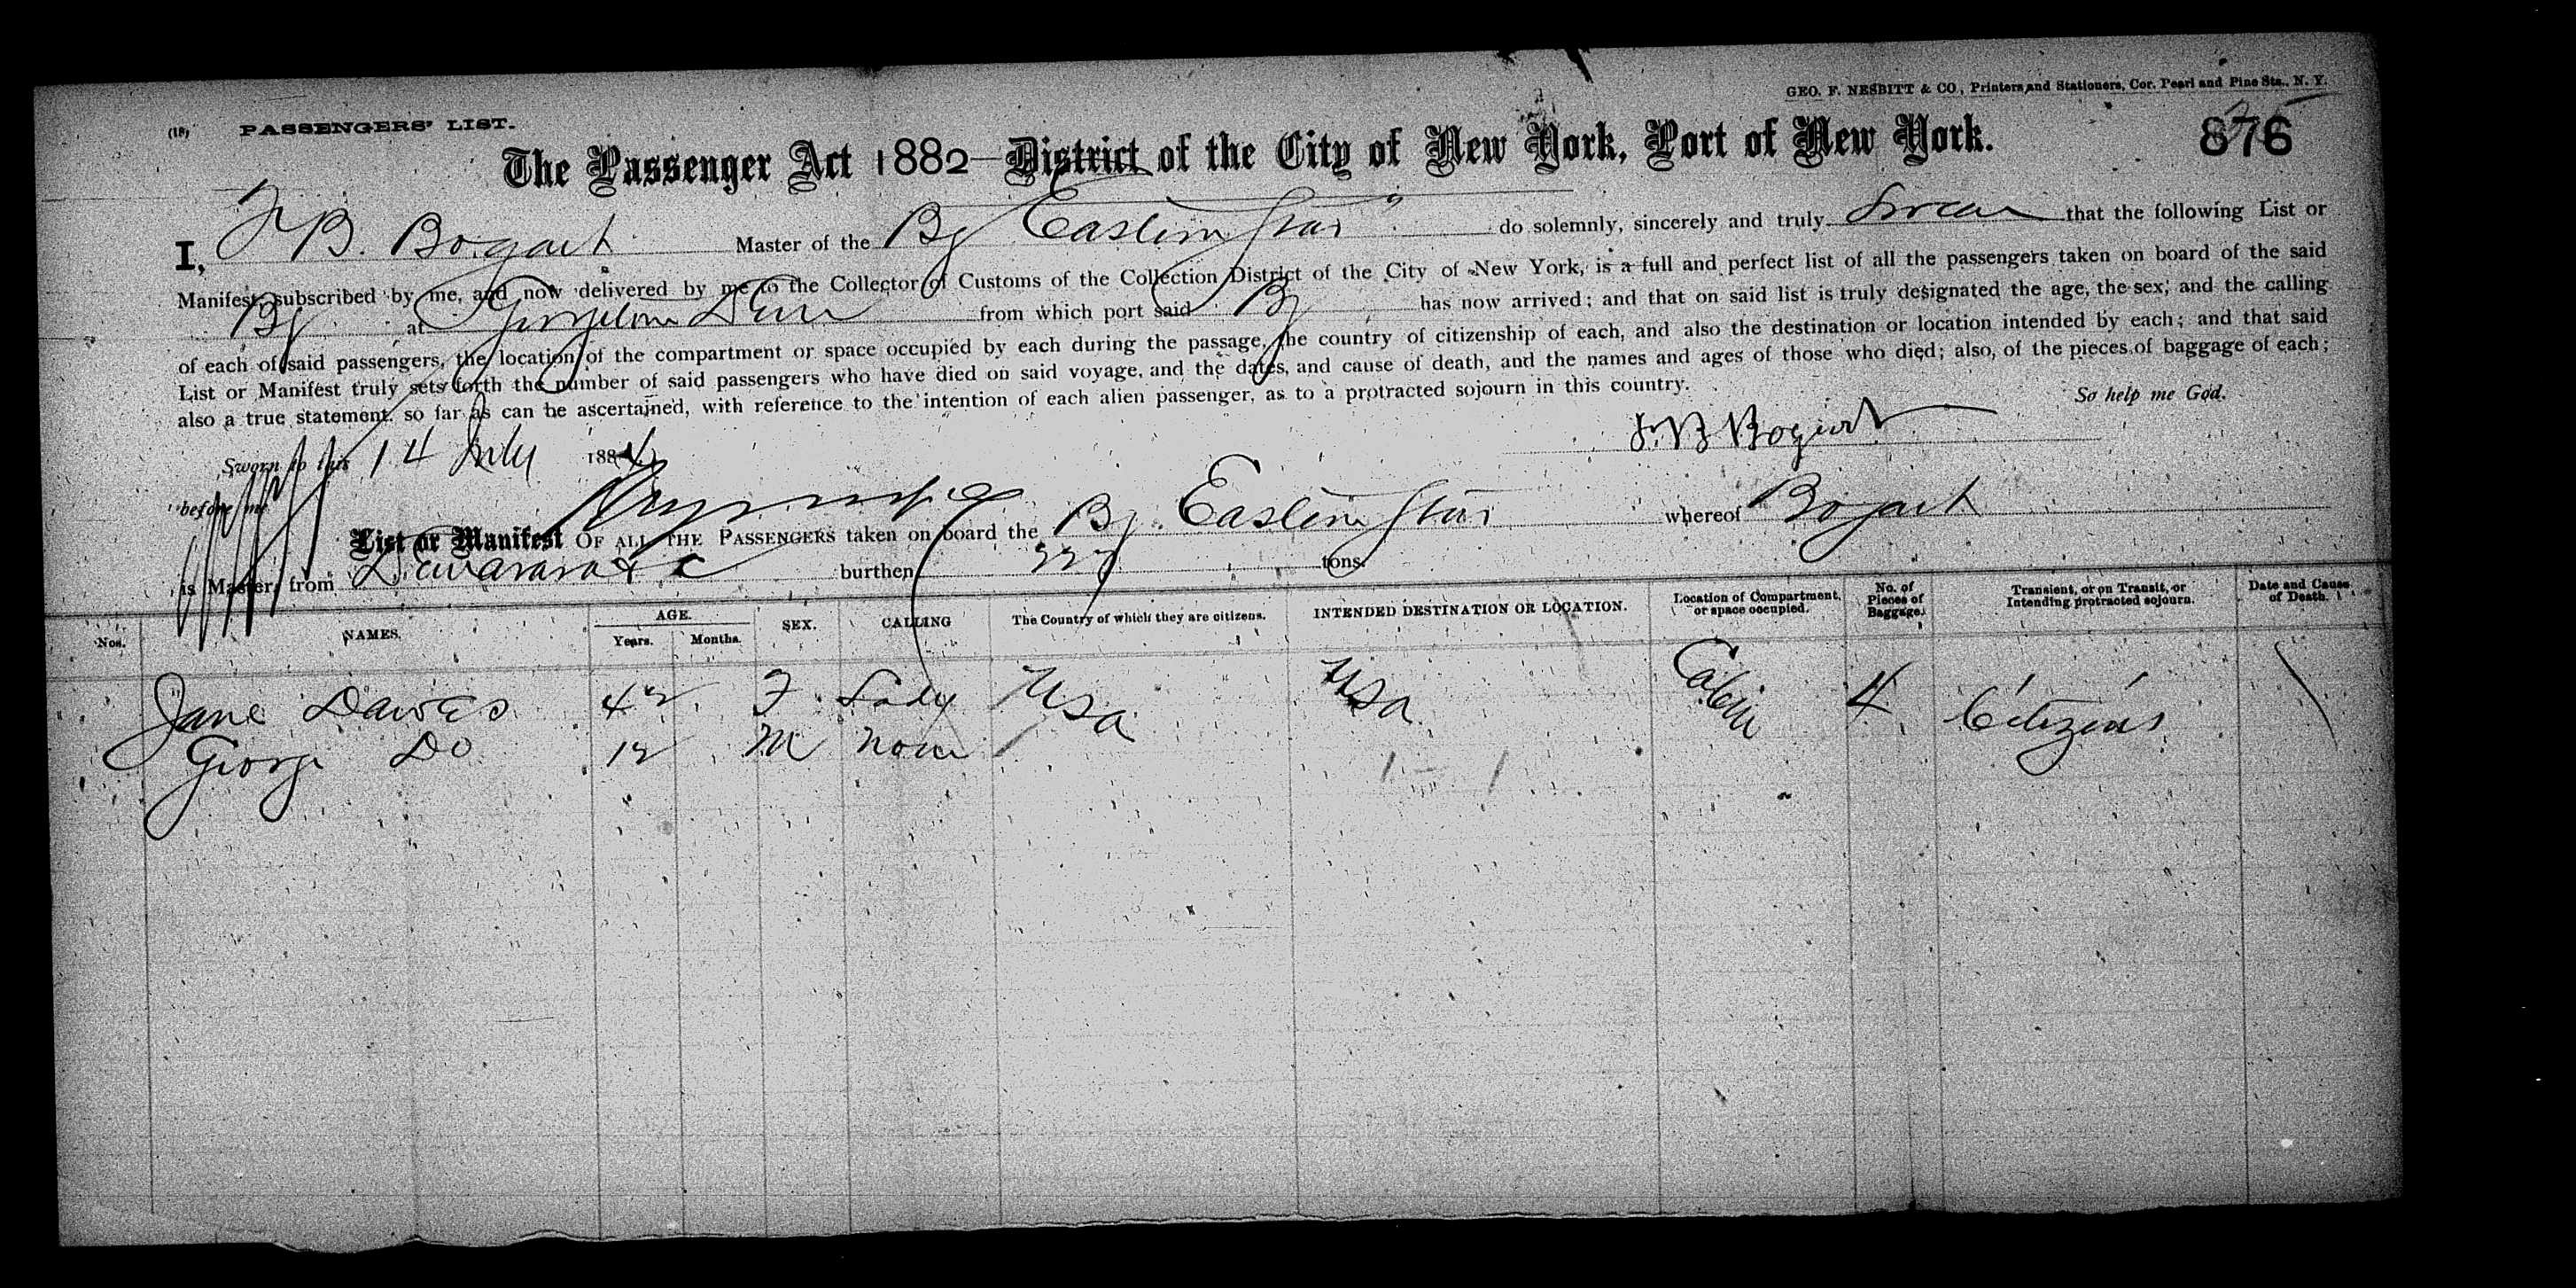 GEO. F. NESBITT & CO., Printers and Stationers, Cor. Pearl and Pine Sts., N. Y.
(18) PASSENGERS' LIST.
876
The Passenger Act 1882—District of the City of New York, Port of New York.
I, B. Bogart Master of the Bg Eastern Star do solemnly, sincerely and truly Swear that the following List or
Manifest, subscribed by me, and now delivered by me to the Collector of Customs of the Collection District of the City of New York, is a full and perfect list of all the passengers taken on board of the said
Bg at Georgetown Dem from which port said Bg has now arrived; and that on said list is truly designated the age, the sex, and the calling
of each of said passengers, the location of the compartment or space occupied by each during the passage, the country of citizenship of each, and also the destination or location intended by each; and that said
List or Manifest truly sets forth the number of said passengers who have died on said voyage, and the dates, and cause of death, and the names and ages of those who died; also, of the pieces of baggage of each;
also a true statement, so far as can be ascertained, with reference to the intention of each alien passenger, as to a protracted sojourn in this country. So help me God.
B Bogart
Sworn to this 14 July 188
before me
List or Manifest OF ALL THE PASSENGERS taken on board the Bg. Eastern Star whereof Bogart
is Master, from Demarara burthen tons.
Nos. NAMES. AGE. Years. Months. SEX. CALLING The Country of which they are citizens. INTENDED DESTINATION OR LOCATION. Location of Compartment, or space occupied. No. of Pieces of Baggage. Transient, or on Transit, or Intending protracted sojourn. Date and Cause of Death.
Jane Dawes 42 F Lady USA USA Cabin 4 Citizens
George Do 12 M None